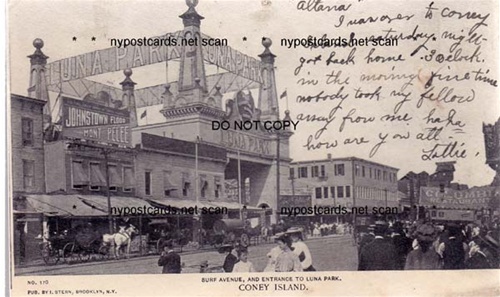 Altana
I was over to Coney
* * nypostcards.net scan * *
nypostcards.net scan
Island Saturday night
got back home 3 O'clock.
in the morning fine time
nobody took my fellow
away from me, haha
how are you all =
Lallie.
LUNA PARK
LUNA PARK
JOHNSTOWN FLOOD
MONT PELEE
DO NOT COPY
LUNA PARK
RESTAURANT
nypostcards.net scan
nypostcards.net scan
NO. 170
SURF AVENUE, AND ENTRANCE TO LUNA PARK.
PUB. BY I. STERN, BROOKLYN, N.Y.
CONEY ISLAND.